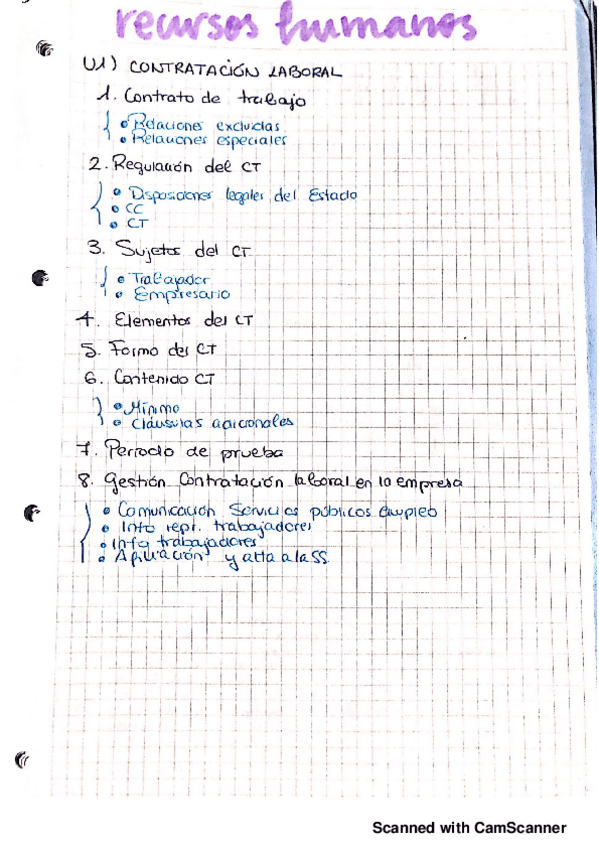 recursos humanos
U1) CONTRATACIÓN LABORAL
1. Contrato de trabajo
• Relaciones excluidas
• Relaciones especiales
2. Regulación del CT
• Disposiciones legales del Estado
• CC
• CT
3. Sujetos del CT
• Trabajador
• Empresario
4. Elementos del CT
5. Forma del CT
6. Contenido CT
• Mínimo
• Cláusulas adicionales
7. Periodo de prueba
8. Gestión Contratación laboral en la empresa
• Comunicación Servicios públicos empleo
• Info repr. trabajadores
• Info trabajadores
• Afiliación y alta a la SS.
Scanned with CamScanner